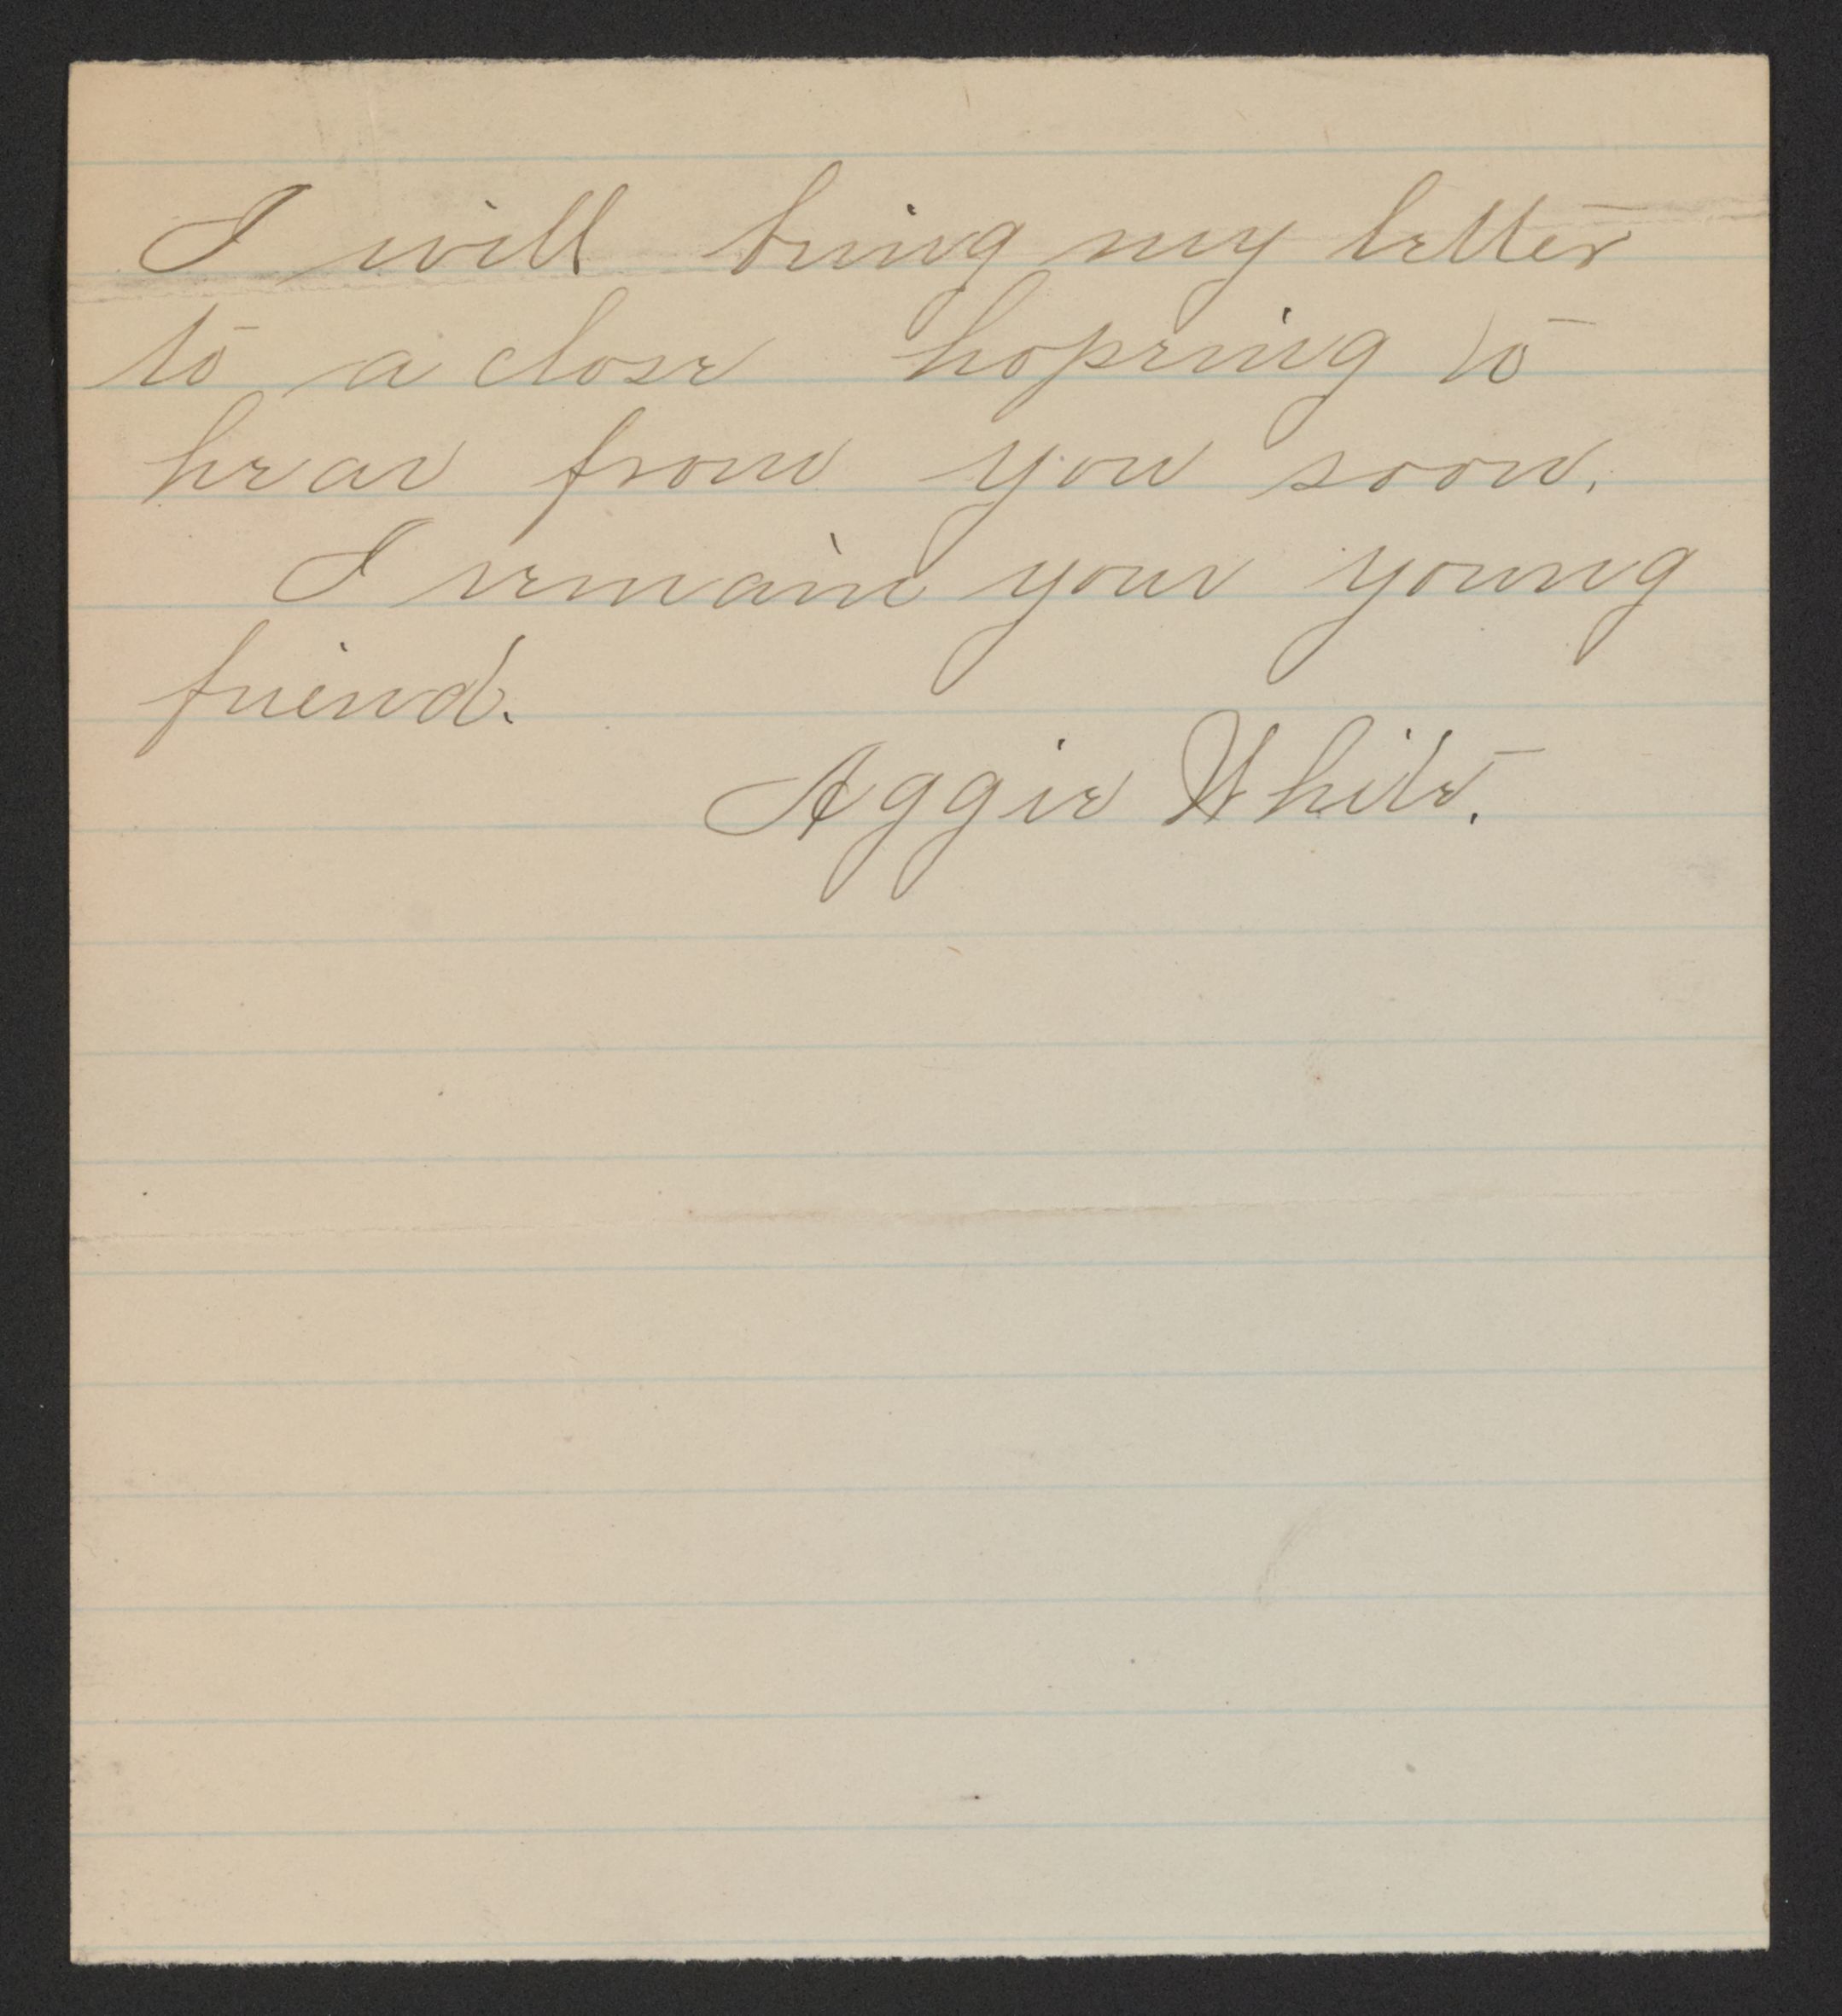 I will bring my letter
to a close hopeing to
hear from you soon.
I remain your young
friend.
Aggie White.